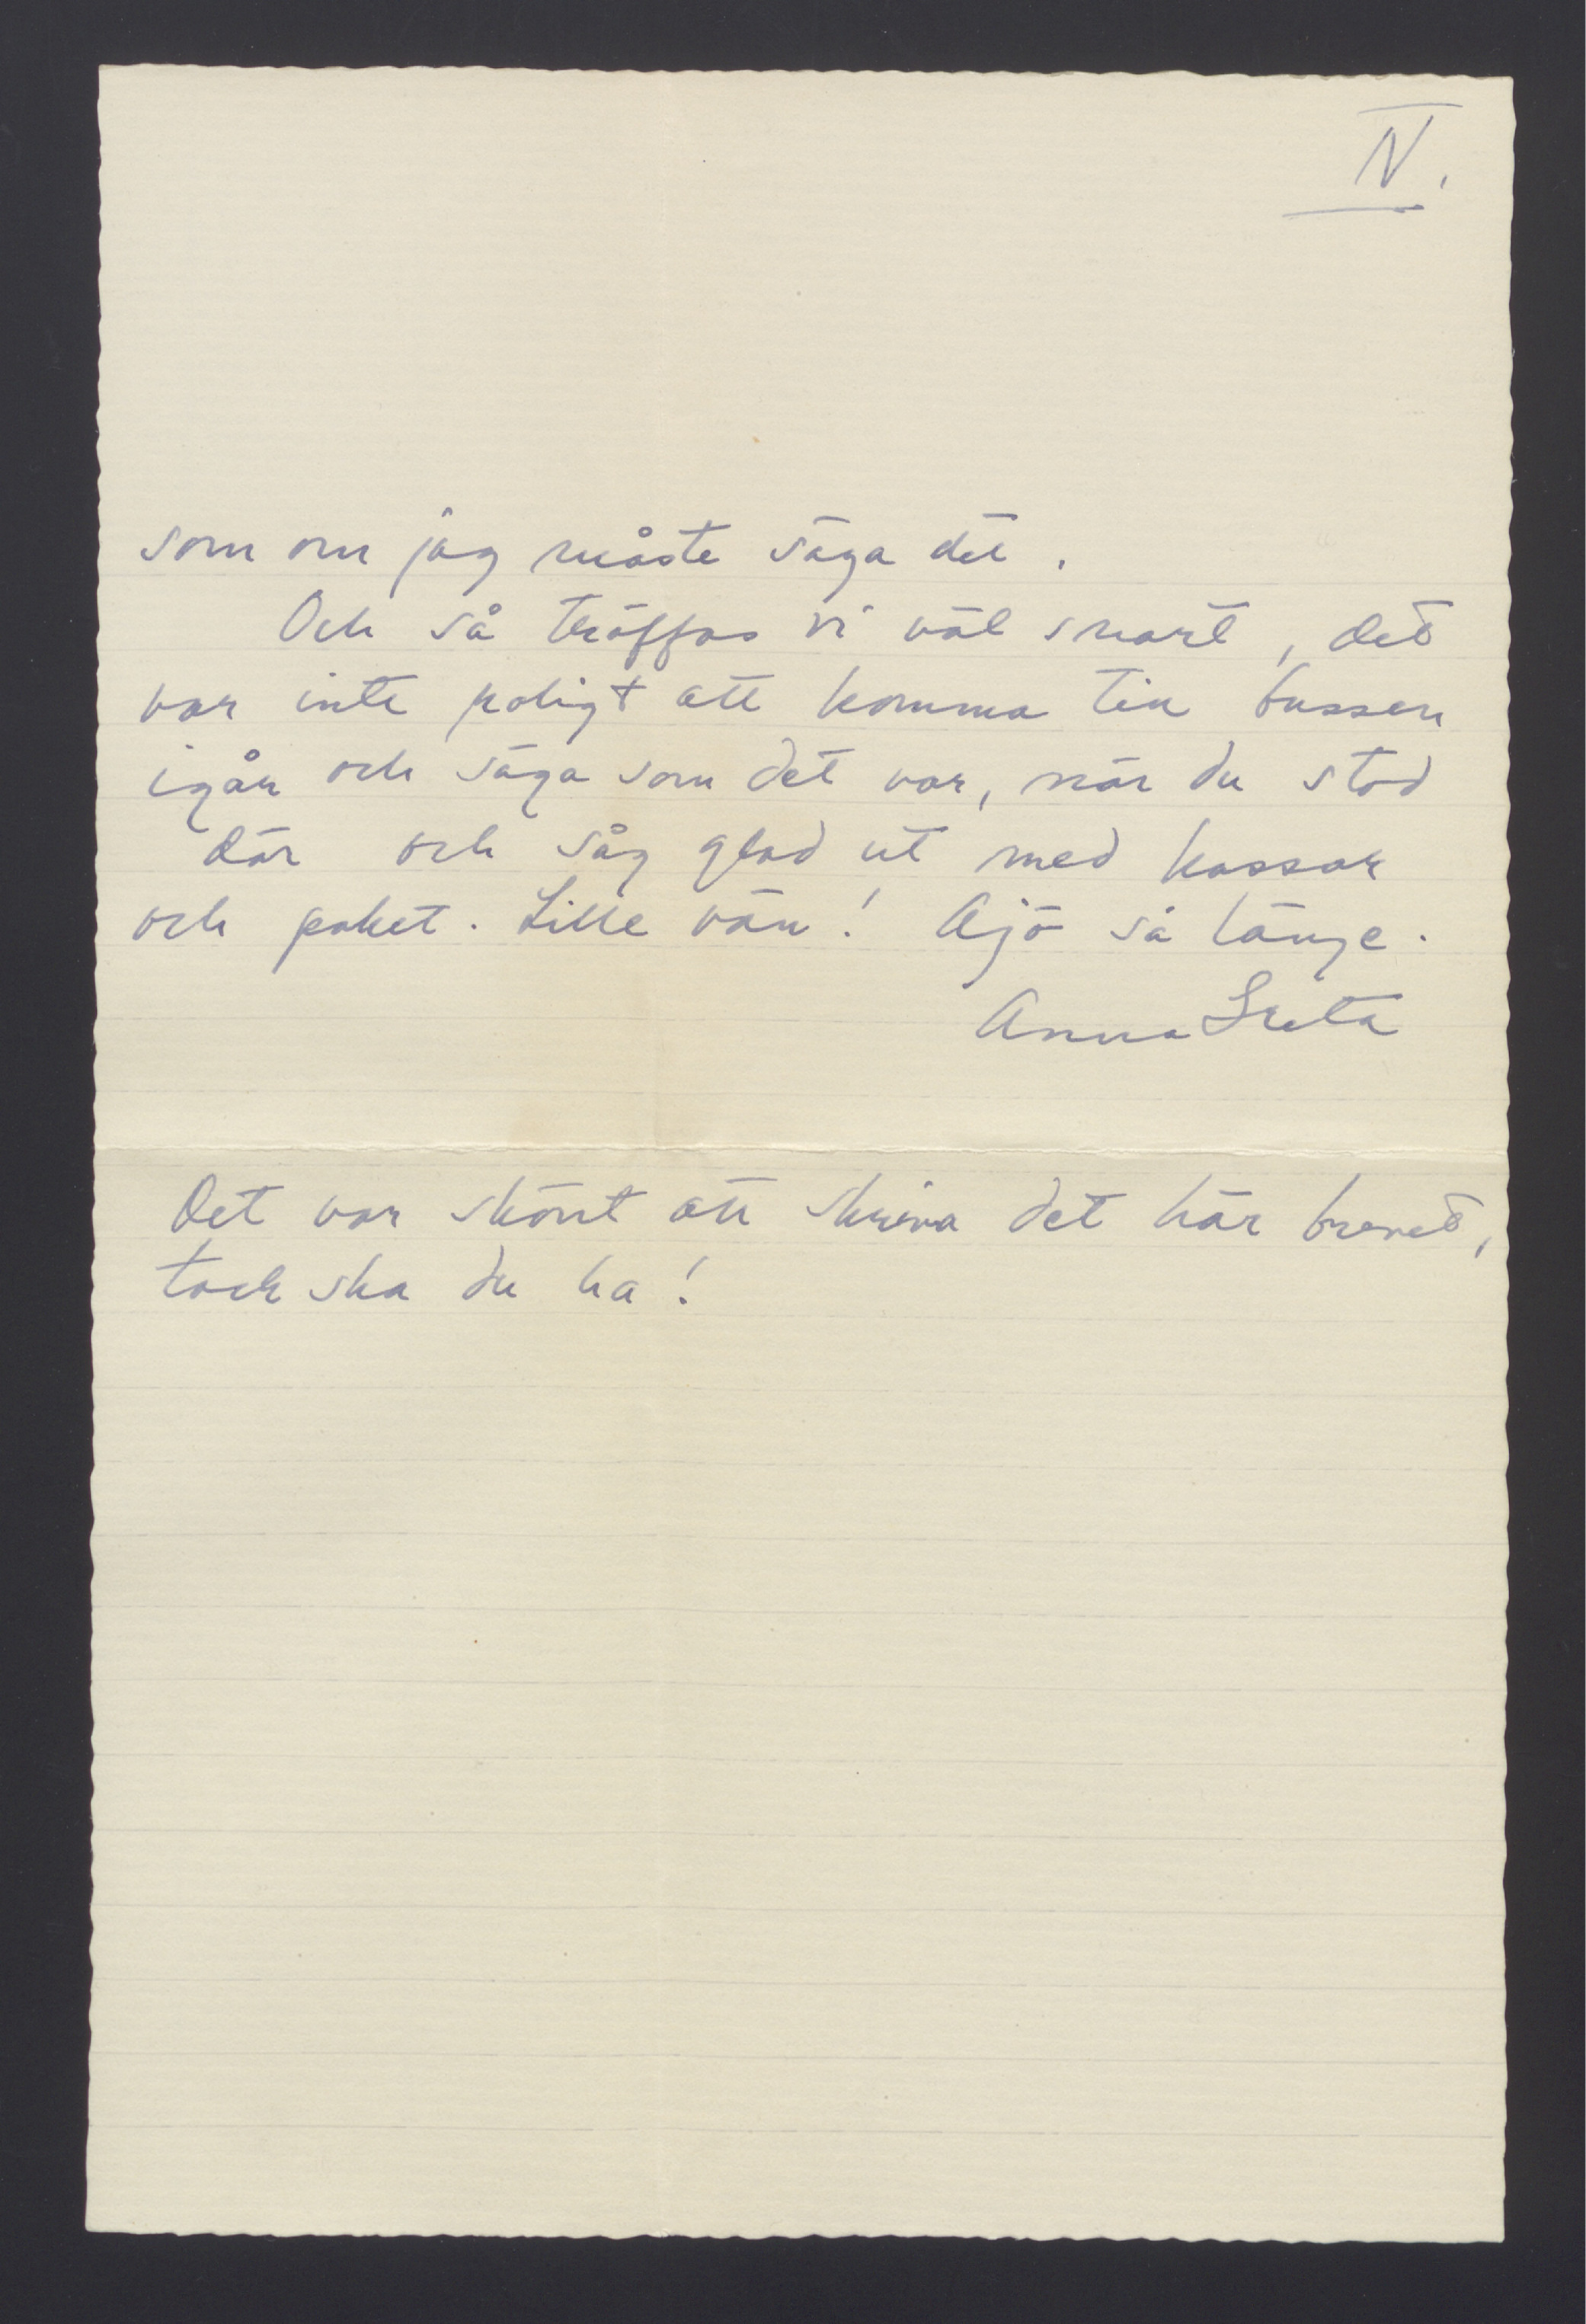 IV.
som om jag måste säga det.
Och så träffas vi väl snart, det
var inte roligt att komma till bussen
igår och säga som det var, när du stod
där och såg glad ut med kassar
och paket. Lille vän! Ajö så länge.
Anna Greta
Det var skönt att skriva det här brevet,
tack ska du ha!